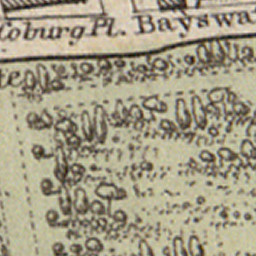 oburg Pl. Bayswa
te